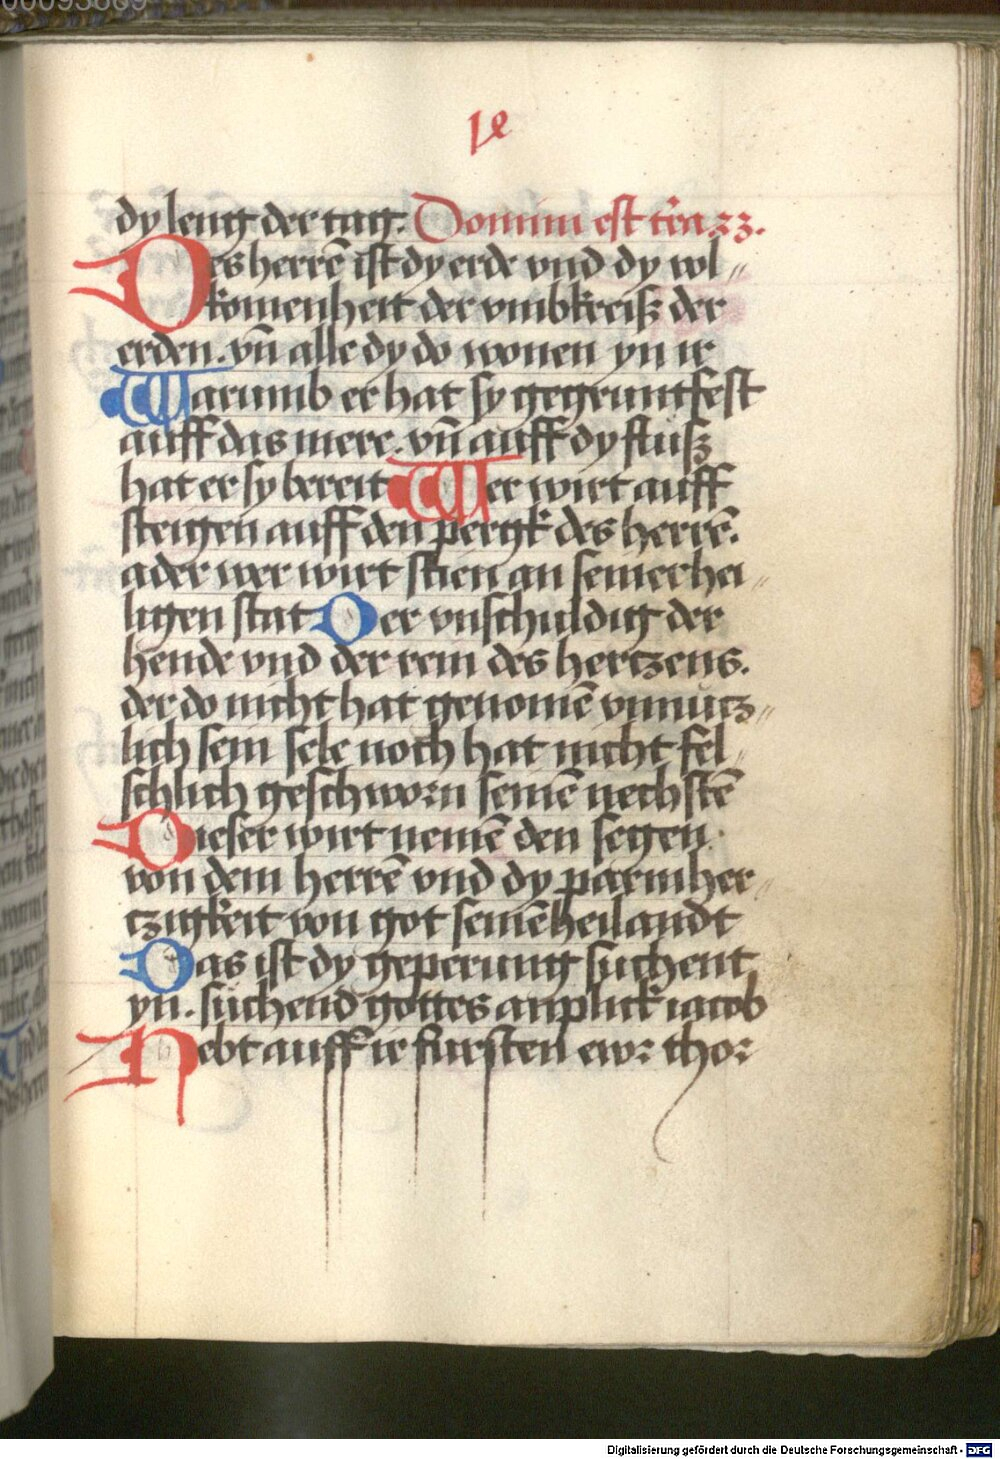 00093669
dy leng der tag. Domini est t'ra 23.
Des herrē ist dy erde vnd dy vol„
komenheit der vmbkreiß der
erden. vn̄ alle dy do wonen yn ir
Warumb er hat sy gegruntfest
auff das mere. vn̄ auff dy fluß
hat er sy bereit Wer wirt auff
steigen auff den pergk des herrē.
ader wer wirt stien an seiner hei„
ligen stat Der vnschuldig der
hende vnd der rein des hertzens.
der do nicht hat genomē vnnutz„
lich sein sele noch hat nicht fel„
schlich geschworn seinē nechstē
Dieser wirt nemē den segen.
von dem herrē vnd dy parmher„
tzigkeit von got seinē heilandt
Das ist dy geperung suchent
yn. suchend gottes anplick iacob
Hebt auff ir fursten ewr thor
Digitalisierung gefördert durch die Deutsche Forschungsgemeinschaft - DFG